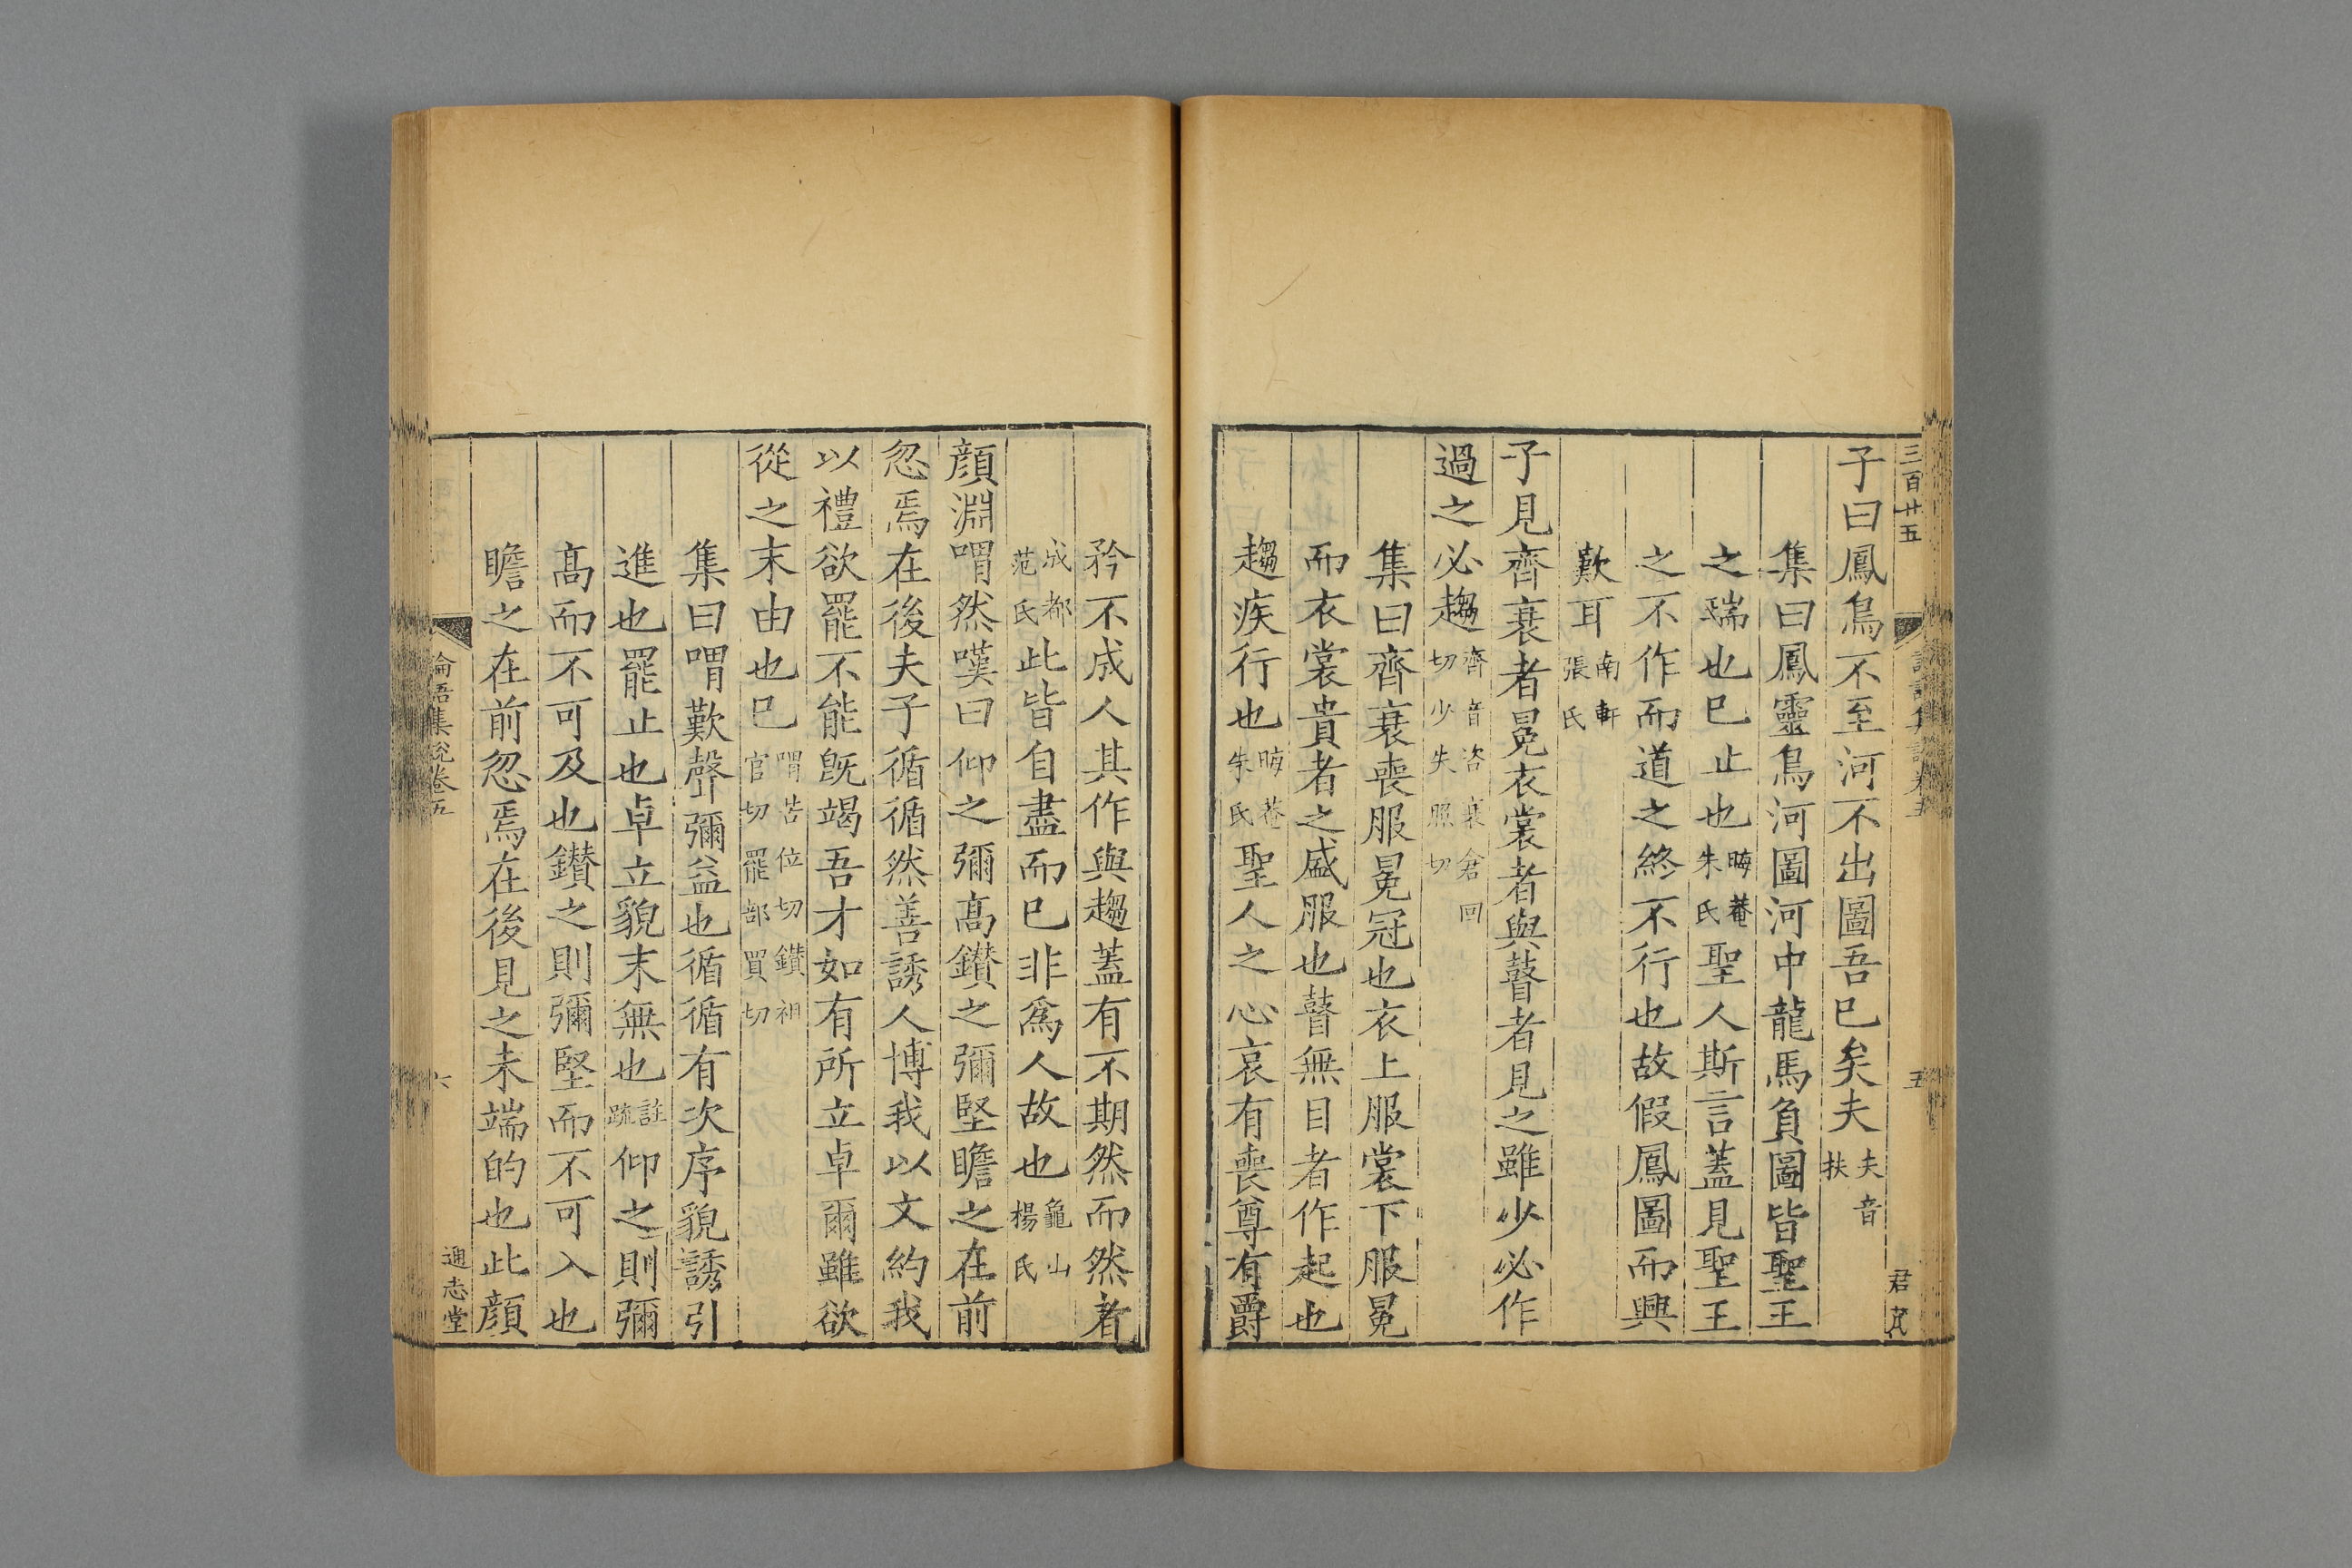 三百廿五
五
君茂
子曰鳳鳥不至河不出圖吾已矣夫夫音扶
集曰鳳靈鳥河圖河中龍馬負圖皆聖王
之瑞也已止也晦菴朱氏聖人斯言蓋見聖王
之不作而道之終不行也故假鳳圖而興
歎耳南軒張氏
子見齊衰者冕衣裳者與瞽者見之雖少必作
過之必趨齊音咨衰倉回切少失照切
集曰齊衰喪服冕冠也衣上服裳下服冕
而衣裳貴者之盛服也瞽無目者作起也
趨疾行也晦菴朱氏聖人之心哀有喪尊有爵
矜不成人其作與趨蓋有不期然而然者
成都范氏此皆自盡而已非爲人故也龜山楊氏
顔淵喟然嘆曰仰之彌高鑚之彌堅瞻之在前
忽焉在後夫子循循然善誘人博我以文約我
以禮欲罷不能旣竭吾才如有所立卓爾雖欲
從之末由也已喟苦位切鑚祖官切罷部買切
集曰喟歎聲彌益也循循有次序貌誘引
進也罷止也卓立貌末無也註疏仰之則彌
高而不可及也鑚之則彌堅而不可入也
瞻之在前忽焉在後見之未端的也此顔
論語集說卷五
六
通志堂